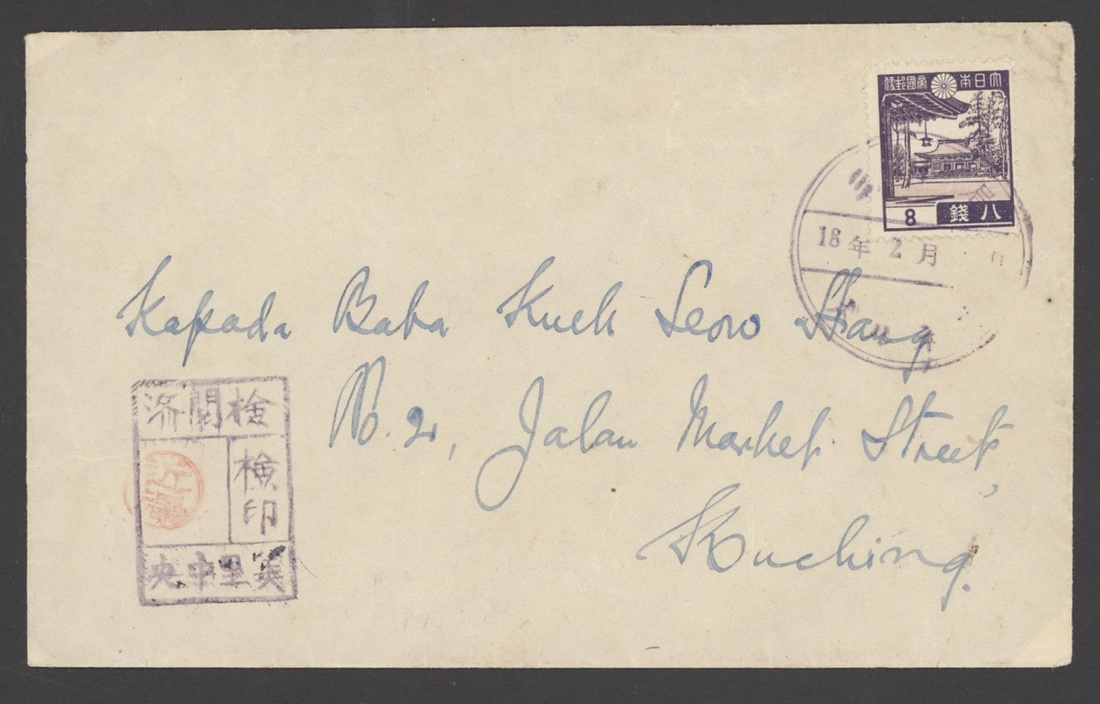 大日本帝國郵便
8 八錢
18年2月
Kapada Baba Kueh Seow Shang,
No. 2, Jalan Market Street,
Kuching.
検閲済
検印
美里中央